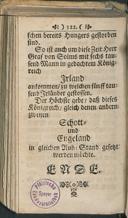 122.
schen bereits Hungers gestorben
sind.
So ist auch um diese Zeit Herr
Graf von Solms mit sechs tau-
send Mann in gedachtem König-
reich
Irland
ankommen / zu welchen fünff tau-
send Irländer gestossen.
Der Höchste gebe / daß dieses
Königreich / gleich denen andern
zweyen
Schott-
und
Engeland
in gleichen Ruh-Stand gesetzt
werden möchte.
ENDE.